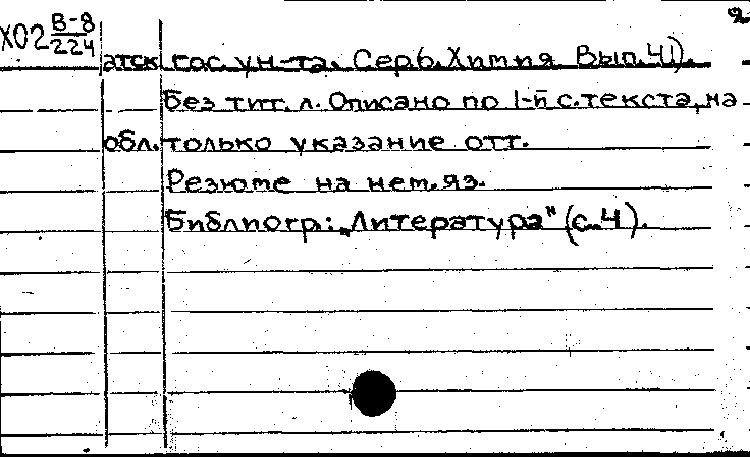 2
Х02 В-8/224
атск гос. ун-та. Сер. Химия Вып. 41).
Без тит. л. Описано по 1-й с. текста, на
обл. только указание отт.
Резюме на нем. яз.
Библиогр.: „Литература" (с. 4).